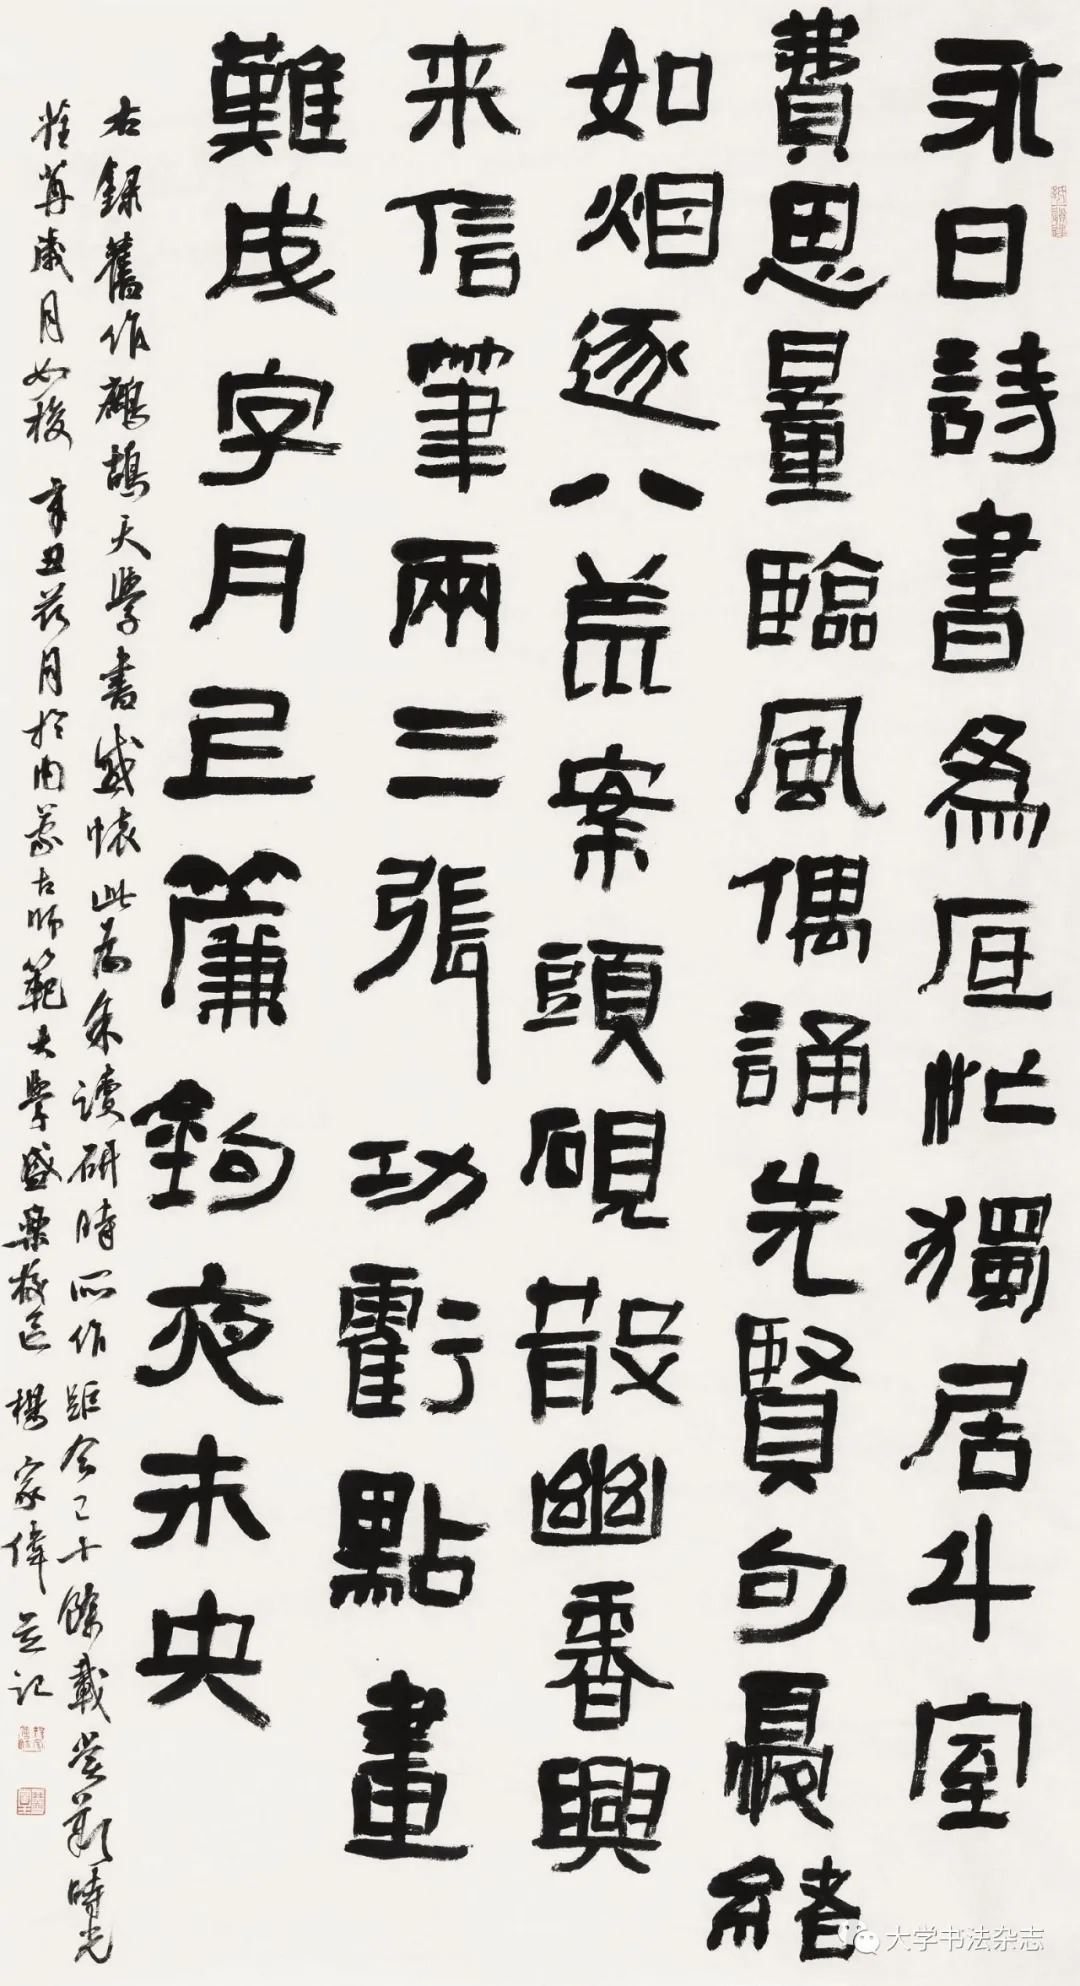 永日詩書為底忙獨居斗室
費思量臨風偶誦先賢句憂緒
如烟逐八荒案頭硯散幽香興
来信筆兩三張功虧點畫
難成字月上簾鉤夜未央
右録舊作鷓鴣天學書感懷此為余讀研時所作距今已十餘載歎時光
荏苒歲月如梭辛丑月於内蒙古師範大學盛樂校區楊家偉並記
大学书法杂志